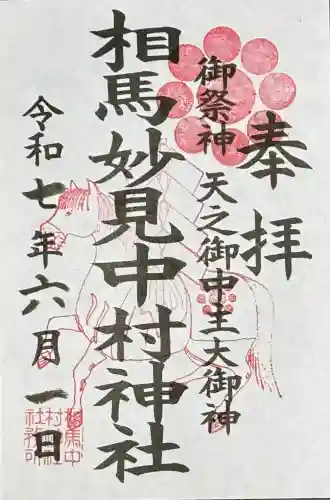 奉拝
御祭神 天之御中主大御神
相馬妙見中村神社
令和七年六月一日
相馬中
村神社
社務所